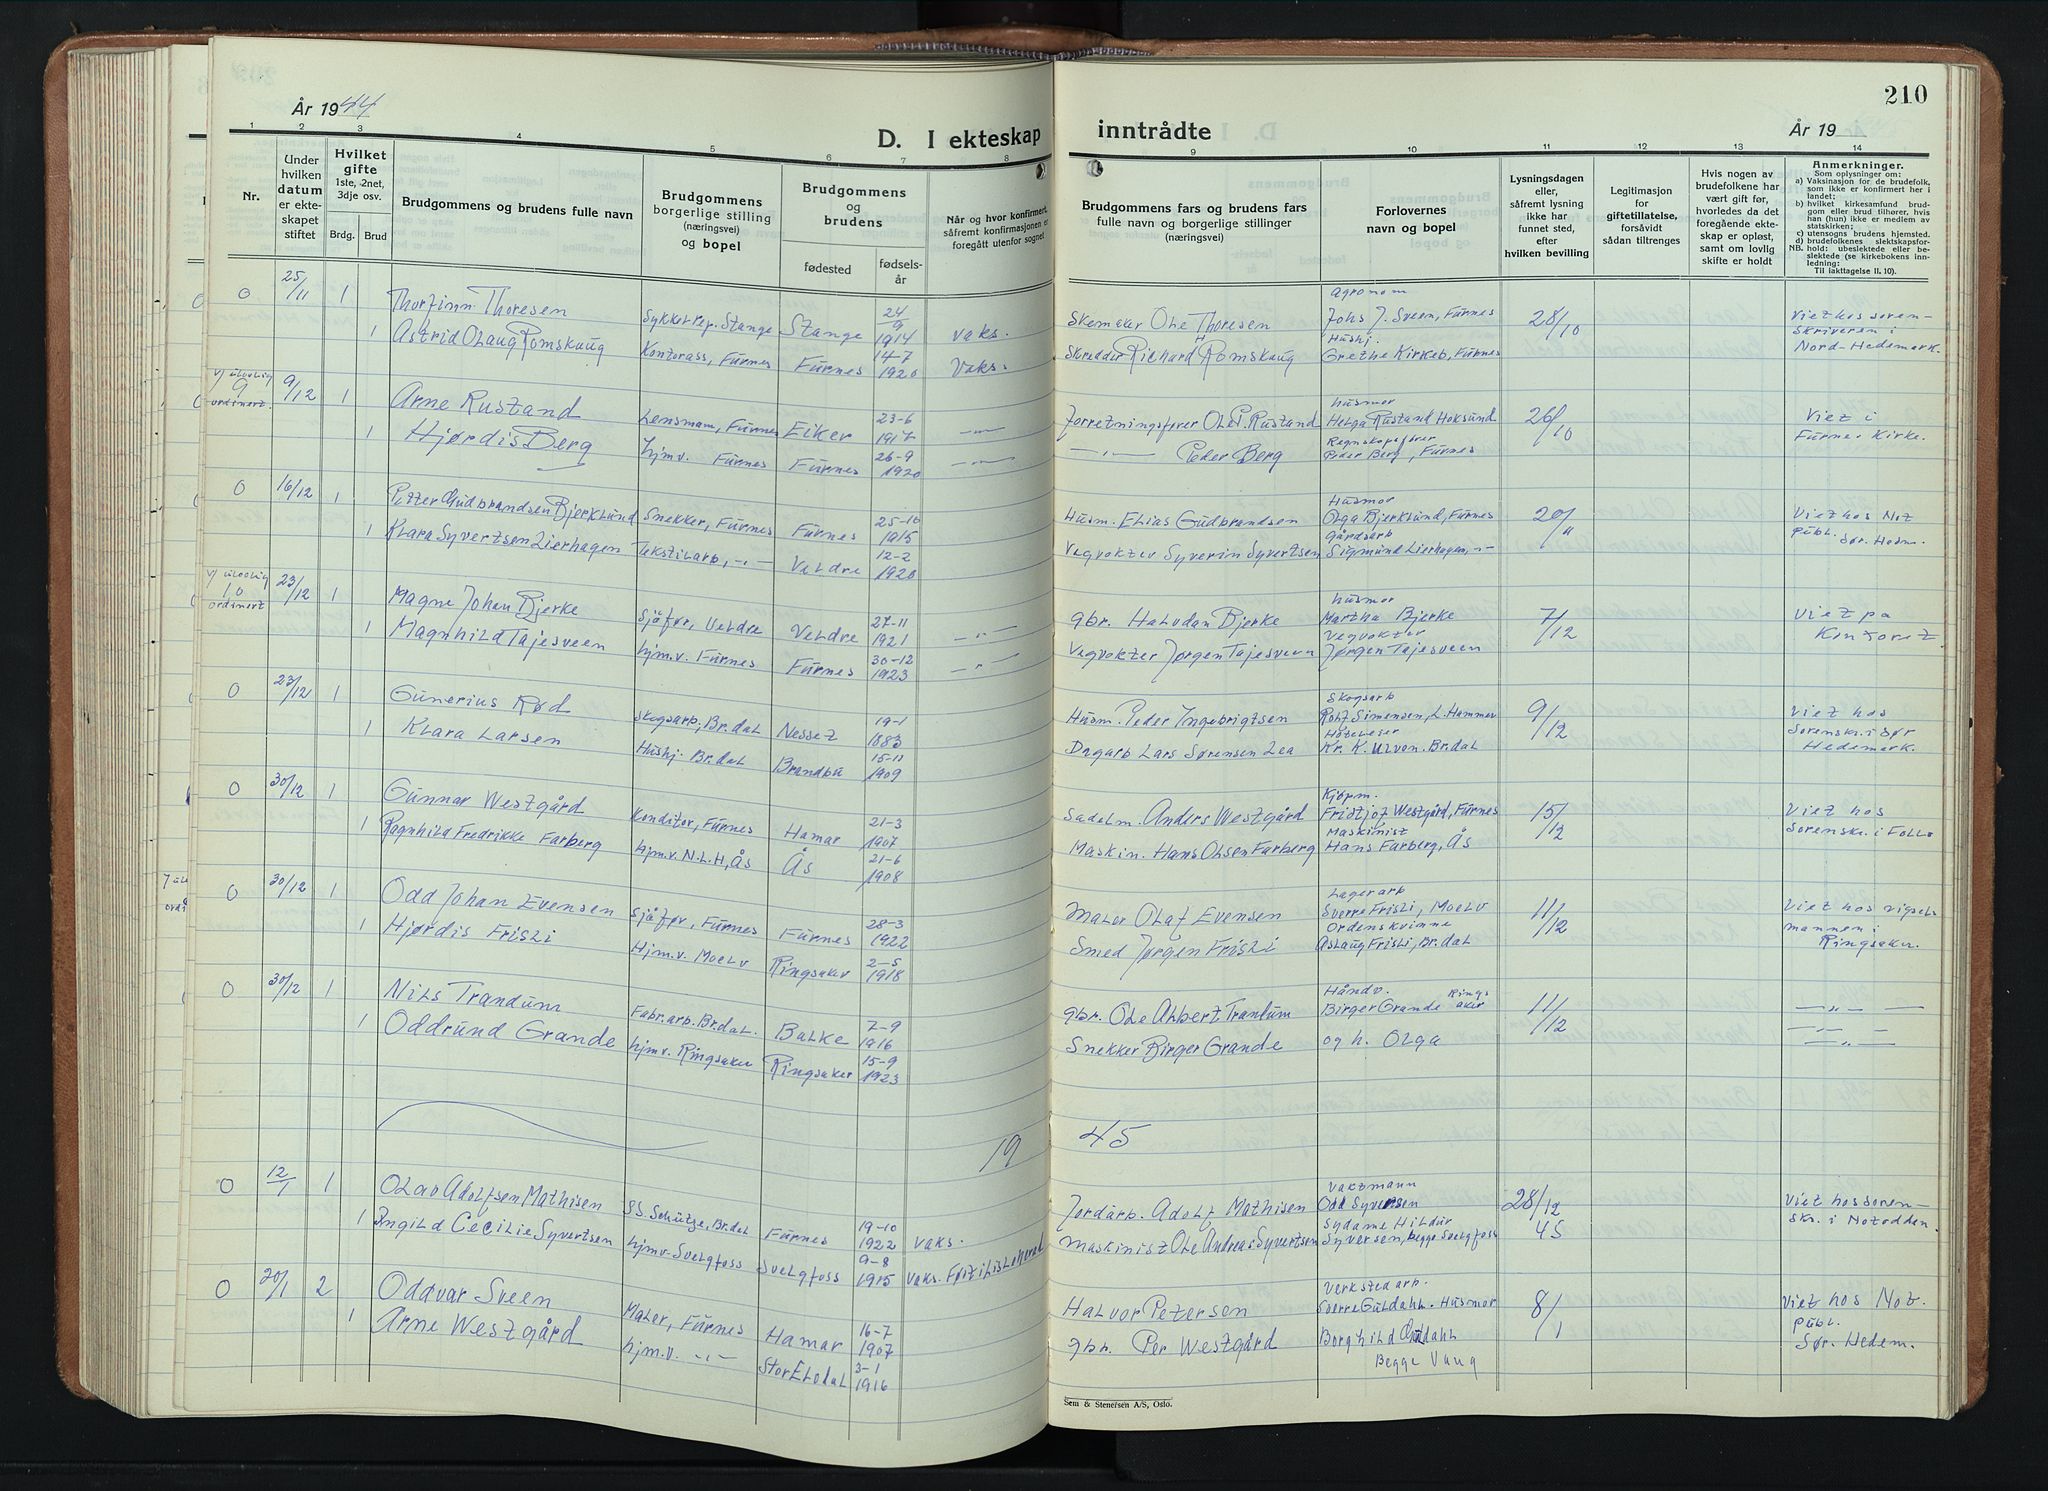 År 1944
D. I ekteskap
inntrådte
210
År 19
1 2 3 4 5 6 7 8
9 10 11 12 13 14
Nr.
Under hvilken datum er ekteskapet stiftet
Hvilket gifte 1ste, 2net, 3dje osv.
Brdg. Brud
Brudgommens og brudens fulle navn
Brudgommens borgerlige stilling (næringsvei) og bopel
Brudgommens og brudens
fødested
fødselsår
Når og hvor konfirmert, såfremt konfirmasjonen er foregått utenfor sognet
Brudgommens fars og brudens fars fulle navn og borgerlige stillinger (næringsvei)
Forlovernes navn og bopel
Lysningsdagen eller, såfremt lysning ikke har funnet sted, efter hvilken bevilling
Legitimasjon for giftetillatelse, forsåvidt sådan tiltrenges
Hvis nogen av brudefolkene har vært gift før, hvorledes da det foregående ekteskap er opløst, samt om lovlig skifte er holdt
Anmerkninger.
Som oplysninger om:
a) Vaksinasjon for de brudefolk, som ikke er konfirmert her i landet;
b) hvilket kirkesamfund brudgom eller brud tilhører, hvis han (hun) ikke er medlem av statskirken;
c) utensogns brudens hjemsted.
d) brudefolkenes slektskapsforhold: ubeslektede eller beslektede (se kirkebokens innledning: Til iakttagelse II, 10).
NB.
0 25/11 1 Thorfinn Thoresen Sykkelrep. Stange Stange 24/9 1914 vaks. Skomaker Ole Thoresen Agronom Johs J. Sveen, Furnes 28/10 Viet hos sorenskriveren i Nord-Hedemark.
1 Astrid Olaug Romskaug Kontorass, Furnes Furnes 14-7 1920 Vaks. Skredder Richard Romskaug Hushj. Grethe Kirkeb, Furnes
v/ ulovlig 9 ordinert. 9/12 1 Arne Rustand Lensmam, Furnes Eiker 23-6 1917 —"— Forretningsfører Ole P. Rustand Husmor Helga Rustand Hoksund 26/10 Viet i Furnes Kirke.
1 Hjørdis Berg hjmv. Furnes Furnes 26-9 1920 —"— —"— Peder Berg Regnskapsfører Peder Berg, Furnes
0 16/12 1 Petter Gudbrandsen Bjerklund Snekker, Furnes Furnes 25-10 1915 Husm. Elias Gudbrandsen Husmor Olga Bjerklund, Furnes 20/11 Viet hos Not publ. Sør. Hedm.
1 Klara Syvertsen Lierhagen Tekstilarb, -"- Veldre 12-2 1920 Vegvokter Syverin Syvertsen gårdsarb Sigmund Lierhagen, -"-
v/ ulovlig 10 ordinert 23/12 1 Magne Johan Bjerke Sjåfør, Veldre Veldre 27-11 1921 —"— gbr. Halvdan Bjerke husmor Martha Bjerke 7/12 Viet pa Kontoret
1 Magnhild Tajesveen hjm.v. Furnes Furnes 30-12 1923 —"— Vegvokter Jørgen Tajesveen Vegvokter Jørgen Tajesveen
0 23/12 1 Gunerius Rød Skogsarb. Br.dal Nesset 19-1 1883 Husm. Peder Ingebrigtsen Skogsarb Rolf Simensen, L. Hammer 9/12 Viet hos Sorensk. i Sør Hedemark.
1 Klara Larsen Hushj. Br.dal Brandbu 15-11 1909 Dagarb Lars Sørensen Lea Hoteleier Kr. K. Ulven. Br.dal
0 30/12 1 Gunnar Westgård Konditor, Furnes Hamar 21-3 1907 Sadelm. Anders Westgård Kjøpm. Fridtjof Westgård, Furnes 15/12 Viet hos Sorensk. i Follo
1 Ragnhild Fredrikke Farberg hjm.v. N.L.H, Ås Ås 21-6 1908 Maskin. Hans Olsen Farberg Maskinist Hans Farberg, Ås
0 30/12 1 Odd Johan Evensen Sjåfør, Furnes Furnes 28-3 1922 Maler Olaf Evensen Lagerarb Sverre Frisli, Moelv 11/12 Viet hos vigselsmannen i Ringsaker.
1 Hjørdis Frisli Hjm.v. Moelv Ringsaker 2-5 1918 Smed Jørgen Frisli Ordenskvinne Aslaug Frisli, Br.dal
0 30/12 1 Nils Trandum Fabr.arb. Br.dal. Balke 7-9 1916 gbr. Ole Albert Trantum Håndv. Birger Grande Ringsaker 11/12 —"— —
1 Oddrund Grande hjmv. Ringsaker Ringsaker 15-9 1923 Snekker Birger Grande og h. Olga —"—
19 45
0 12/1 1 Olav Adolfsen Mathisen SS. Schütze, Br.dal Furnes 19-10 1922 vaks. Jordarb. Adolf Mathisen Vaktmann Odd Syversen 28/12 45 Viet hos sorenskr. i Notodden.
1 Ingild Cecilie Syvertsen hjmv. Svelgfoss Svelgfoss 9-8 1915 vaks. Maskinist Ole Andreas Syvertsen Sydame Hildur Syversen, begge Svelgfoss
0 20/1 2 Oddvar Sveen Maler, Furnes Hamar 16-7 1907 Halvor Petersen Verkstedarb. Sverre Guldahl. Husmor 8/1 Viet hos Not. publ. Sør. Hedem.
1 Arne Westgård hjm.v. -"- Stor Elvdal 3-1 1916 gbr. Per Westgård Borghild Guldahl Begge Vang
Sem & Stenersen A/S, Oslo.